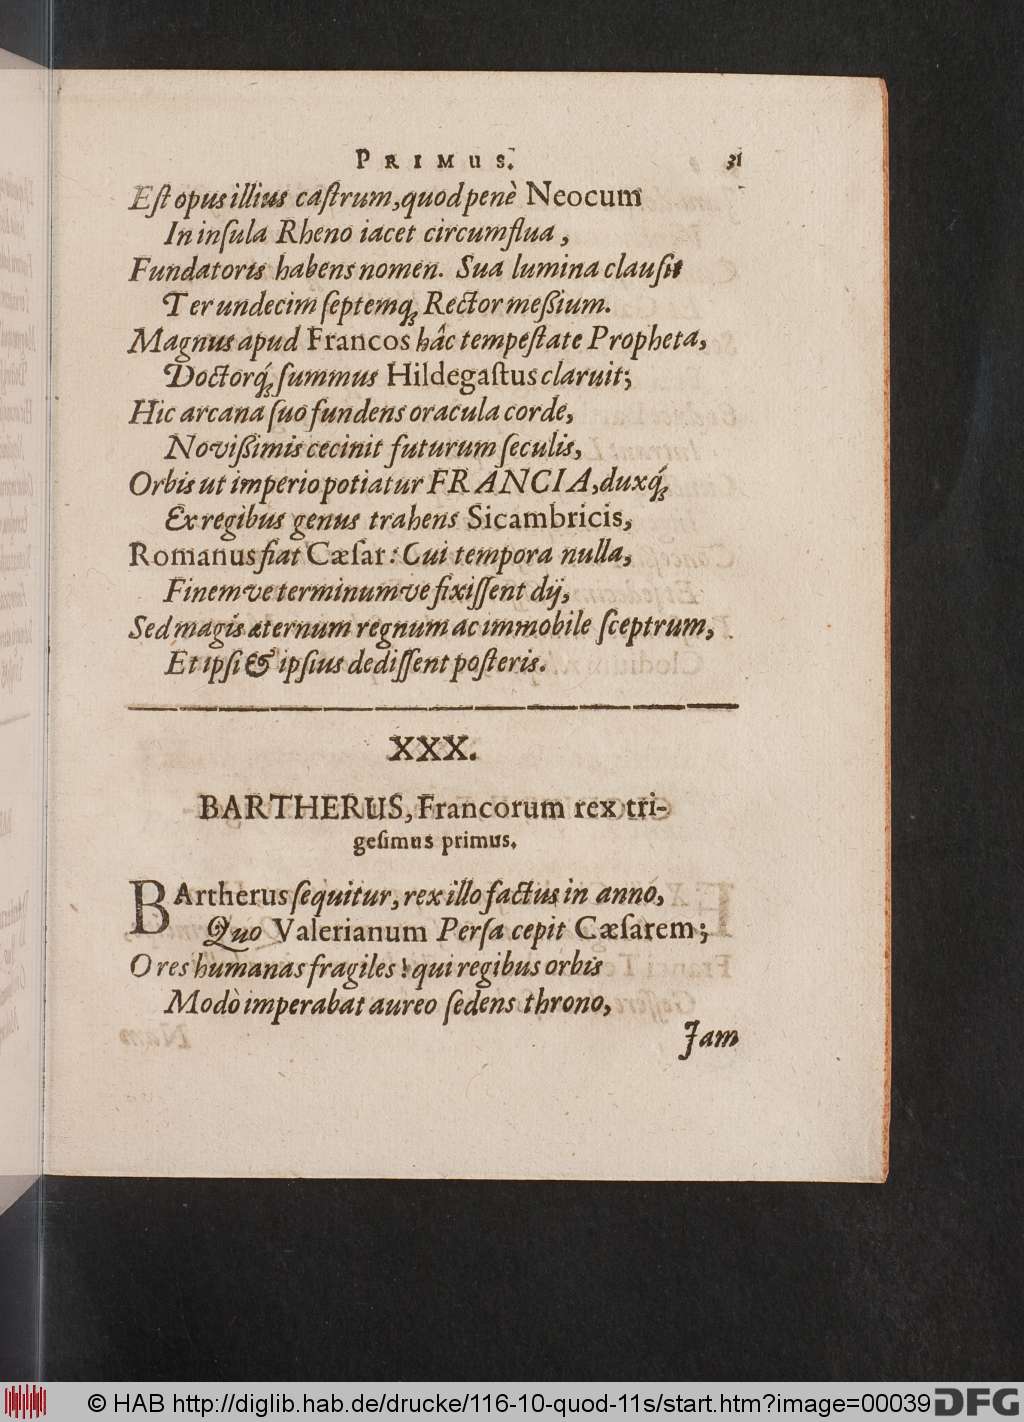 PRIMUS. 31
Eſt opus illius caſtrum, quod penè Neocum
In inſula Rheno iacet circumflua,
Fundatoris habens nomen. Sua lumina clauſit
Ter undecim ſeptemq́; Rector meßium.
Magnus apud Francos hâc tempeſtate Propheta,
Doctorq́; ſummus Hildegaſtus claruit;
Hic arcana ſuo fundens oracula corde,
Novißimis cecinit futurum ſeculis,
Orbis ut imperio potiatur FRANCIA, duxq́;
Ex regibus genus trahens Sicambricis,
Romanus fiat Cæſar: Cui tempora nulla,
Finemve terminumve fixiſſent dij,
Sed magis æternum regnum ac immobile ſceptrum,
Et ipſi & ipſius dediſſent poſteris.
XXX.
BARTHERUS, Francorum rex tri-
geſimus primus.
BArtherus ſequitur, rex illo factus in anno,
Quo Valerianum Perſa cepit Cæſarem;
O res humanas fragiles! qui regibus orbis
Modò imperabat aureo ſedens throno,
Jam
© HAB http://diglib.hab.de/drucke/116-10-quod-11s/start.htm?image=00039
DFG